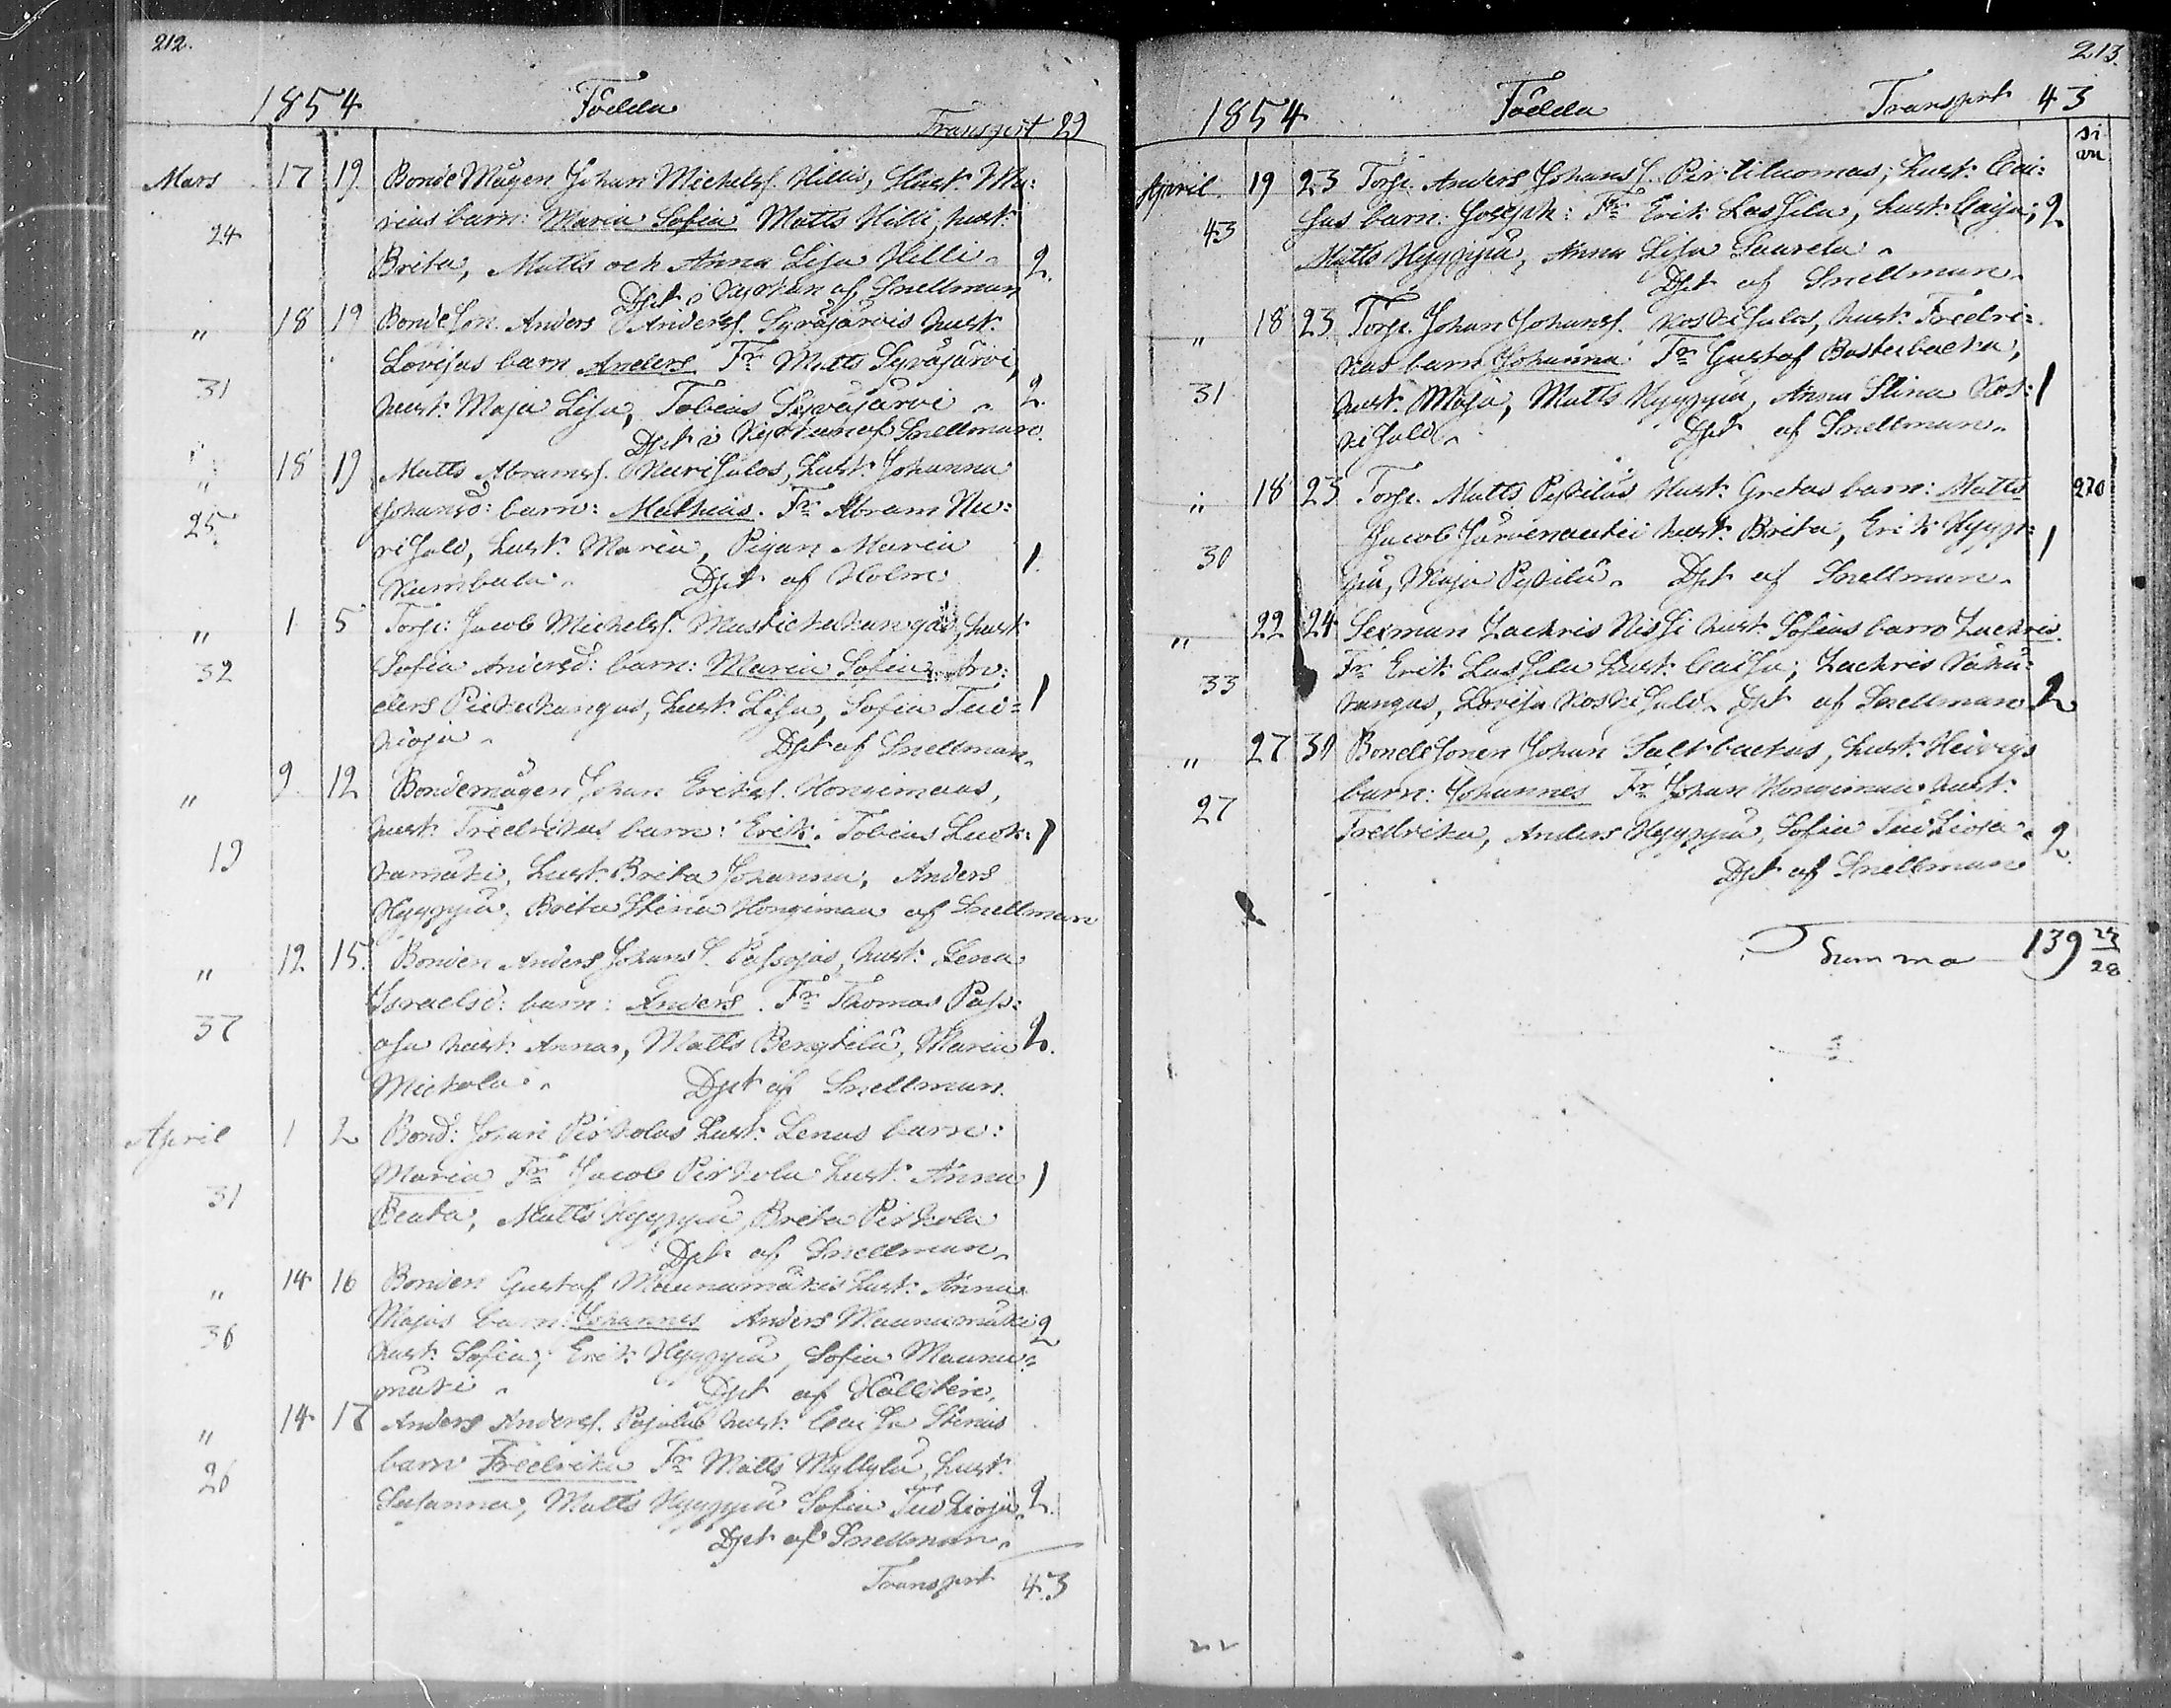 212.
1854 Födda Transport 29
Mars 17 19 Bonde Mågen Johan Michelss. Hillis, Hust: Ma:
24 rias barn: Maria Sofia Matts Hilli, hust:
Brita, Matts och Anna Lisa Hilli. 2.
Dpt i Kyrkan af Snellman
" 18 19 Bondeson. Anders Anderss. Syväjärvis hust:
Lovisas barn Anders Fr Matts Syväjärvi,
31 hust: Maja Lisa, Tobias Syväjärvi. 2.
Dpt i Kyrkan af Snellman.
" 18 19 Matts Abramss. Nurisalos, hust: Johanna
25 Johansd: barn: Mathias. Fr Abram Nu:
risalo, hust: Maria, Pigan Maria 1.
Kumbula. Dpt af Holm
" 1 5 Torp: Jacob Michelss. Mustickakangas, hust:
32 Sofia Andersd: barn: Maria Sofia. An:
ders Pickukangas, hust: Lisa, Sofia Tui= 1
kioja. Dpt af Snellman.
" 9. 12 Bondemågen Johan Erikss. Hongimaas,
hust: Fredrikas barn: Erik. Tobias Luok: 1
19 kamäki, hust: Brita Johanna, Anders
Hyyppä, Brita Stina Hongimaa af Snellman
" 12 15. Bonden Anders Johanss. Passojas, hust: Lena
Israelsd: barn: Anders. Fr Thomas Pass:
37 oja hust: Anna, Matts Bengtilä, Maria 2.
Mickola. Dpt af Snellman.
April 1 2 Bond: Johan Pirkolas hust: Lenas barn:
Maria Fr Jacob Pirkola hust: Anna 1
31 Beata, Matts Hyyppä, Brita Pirkola
Dpt af Snellman.
" 14 16 Bonden Gustaf Maunumäkis hust: Anna
36 Majas barn Johannes Anders Maunumäki 2
hust: Sofia, Erik Hyyppä, Sofia Maunu=
mäki. Dpt af Hällsten.
" 14 17 Anders Anderss. Pajulas hust: Caisa Stinas
barn Fredrika Fr Matts Myllylä, hust:
26 Susanna, Matts Hyyppä Sofia Tuikioja. 2.
Dpt af Snellman.
Transport 43
213.
1854 Födda Transport 43
April 19 23 Torp. Anders Johanss. Pirttiluomas, hust: Cai:
43 sas barn: Joseph: Fr Erik Lassila, hust: Caisa; 2
Matts Hyyppä, Anna Lisa Saurela.
Dpt af Snellman.
" 18 23 Torp. Johan Johanss. Koskisalos, hust: Fredri=
kas barn Johanna. Fr Gustaf Bosterbacka,
31 hust: Maja, Matts Hyyppä, Anna Stina Kos: 1
kisalo. Dpt af Snellman.
" 18 23 Torp. Matts Pystiläs Hust: Gretas barn: Matts 270
Jacob Järvenautii hust: Brita, Erik Hyyp= 1
30 pä, Maja Pystilä. Dpt af Snellman.
" 22 24 Sexman Zachris Nissi hust: Sofias barn Zachris.
Fr Erik Lassila hust: Caisa; Zachris Kähä=
33 kangas, Lovisa Koskisalo. Dpt af Snellman 2
" 27 30 Bondesonen Johan Saltbackas, hust: Heivigs
barn: Johannes Fr Johan Hongimaa hust:
27 Fredrika, Anders Hyyppä, Sofia Tuikioja. 2.
Dpt af Snellman
Summa 139
28